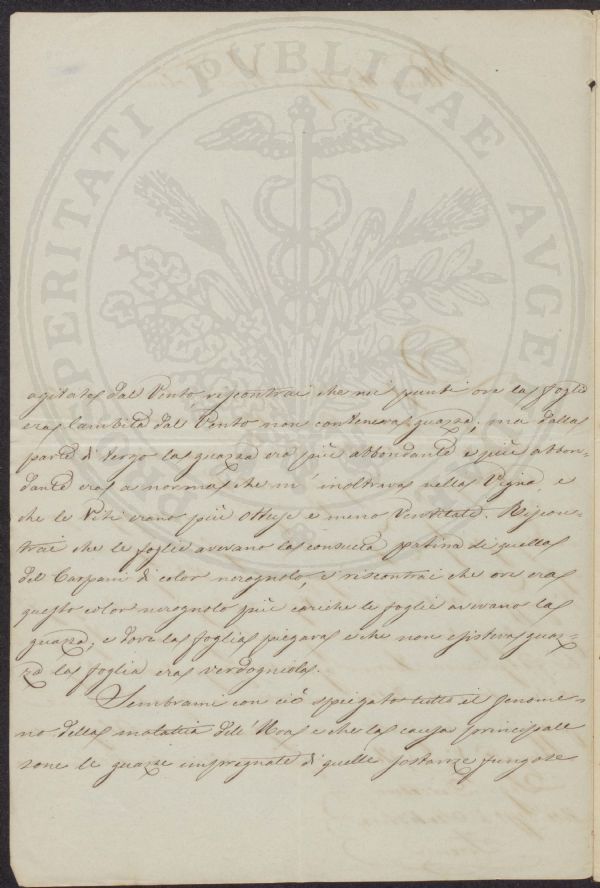 PROSPERITATI PUBLICAE AVGE
agitata dal Vento riscontrai che nei punti ove la foglia
era lambita dal Vento non conteneva guazza, ma dalla
parte di tergo la guazza era più abbondante e più abbon-
dante era a norma che m' inoltrava nella Vigna, e
che le Viti erano più ottuse e meno Ventitate. Riscon-
trai che le foglie avevano la consueta patina di quella
del Carpani di color nerognolo, e riscontrai che ove era
questo color nerognolo più cariche le foglie avevano la
guazza; e dove la foglia piegava e che non esisteva guaz-
za la foglia era verdognola.
Sembrami con ciò spiegato tutto il fenome-
no della malattia dell' Uva e che la causa principale
sone le guazze impregnate di quelle sostanze fungose